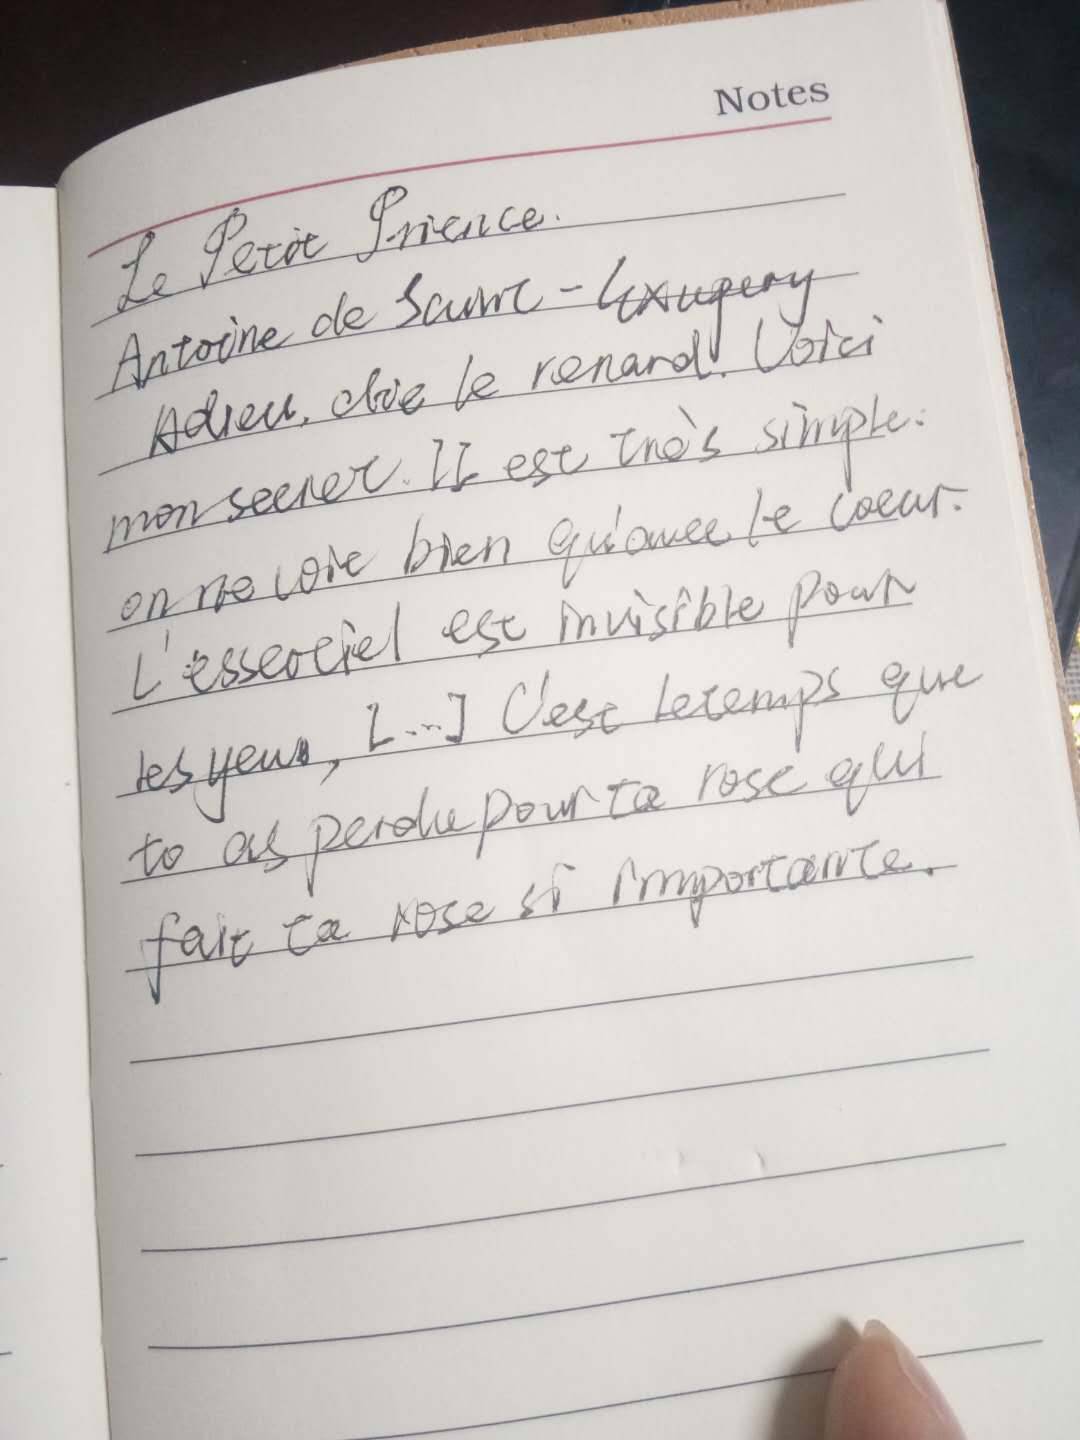 Notes
Le Petit Prience.
Antoine de Saint-Exupery
Adieu, die le renard. Voici
mon secret. Il est très simple:
on ne voie bien qu'avec le coeur.
L'essentiel est invisible pour
les yeux, [...] C'est le temps que
to as perdu pour ta rose qui
fait ta rose si importante.